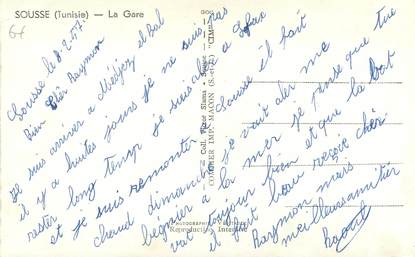 SOUSSE (Tunisie) — La Gare
67
Sousse le 8.2.57
Bien cher Raymon
Je suis arriver a Medjez el Bab
il y a huites jours je ne suis pas
rester long temps je suis aler a Sfax
et je suis remonter a Sousse il fait
chaud dimanche je vait aler me
béginier a la mer je pense que tue
vat toujour bien et que la bat
il fait beau reçoie cher
Raymon mes
meilleurs amitier
Coll. Victor Slama - Sousse
COMBIER IMP. MACON (S.-et-L.) "CIM"
Reproduction Interdite